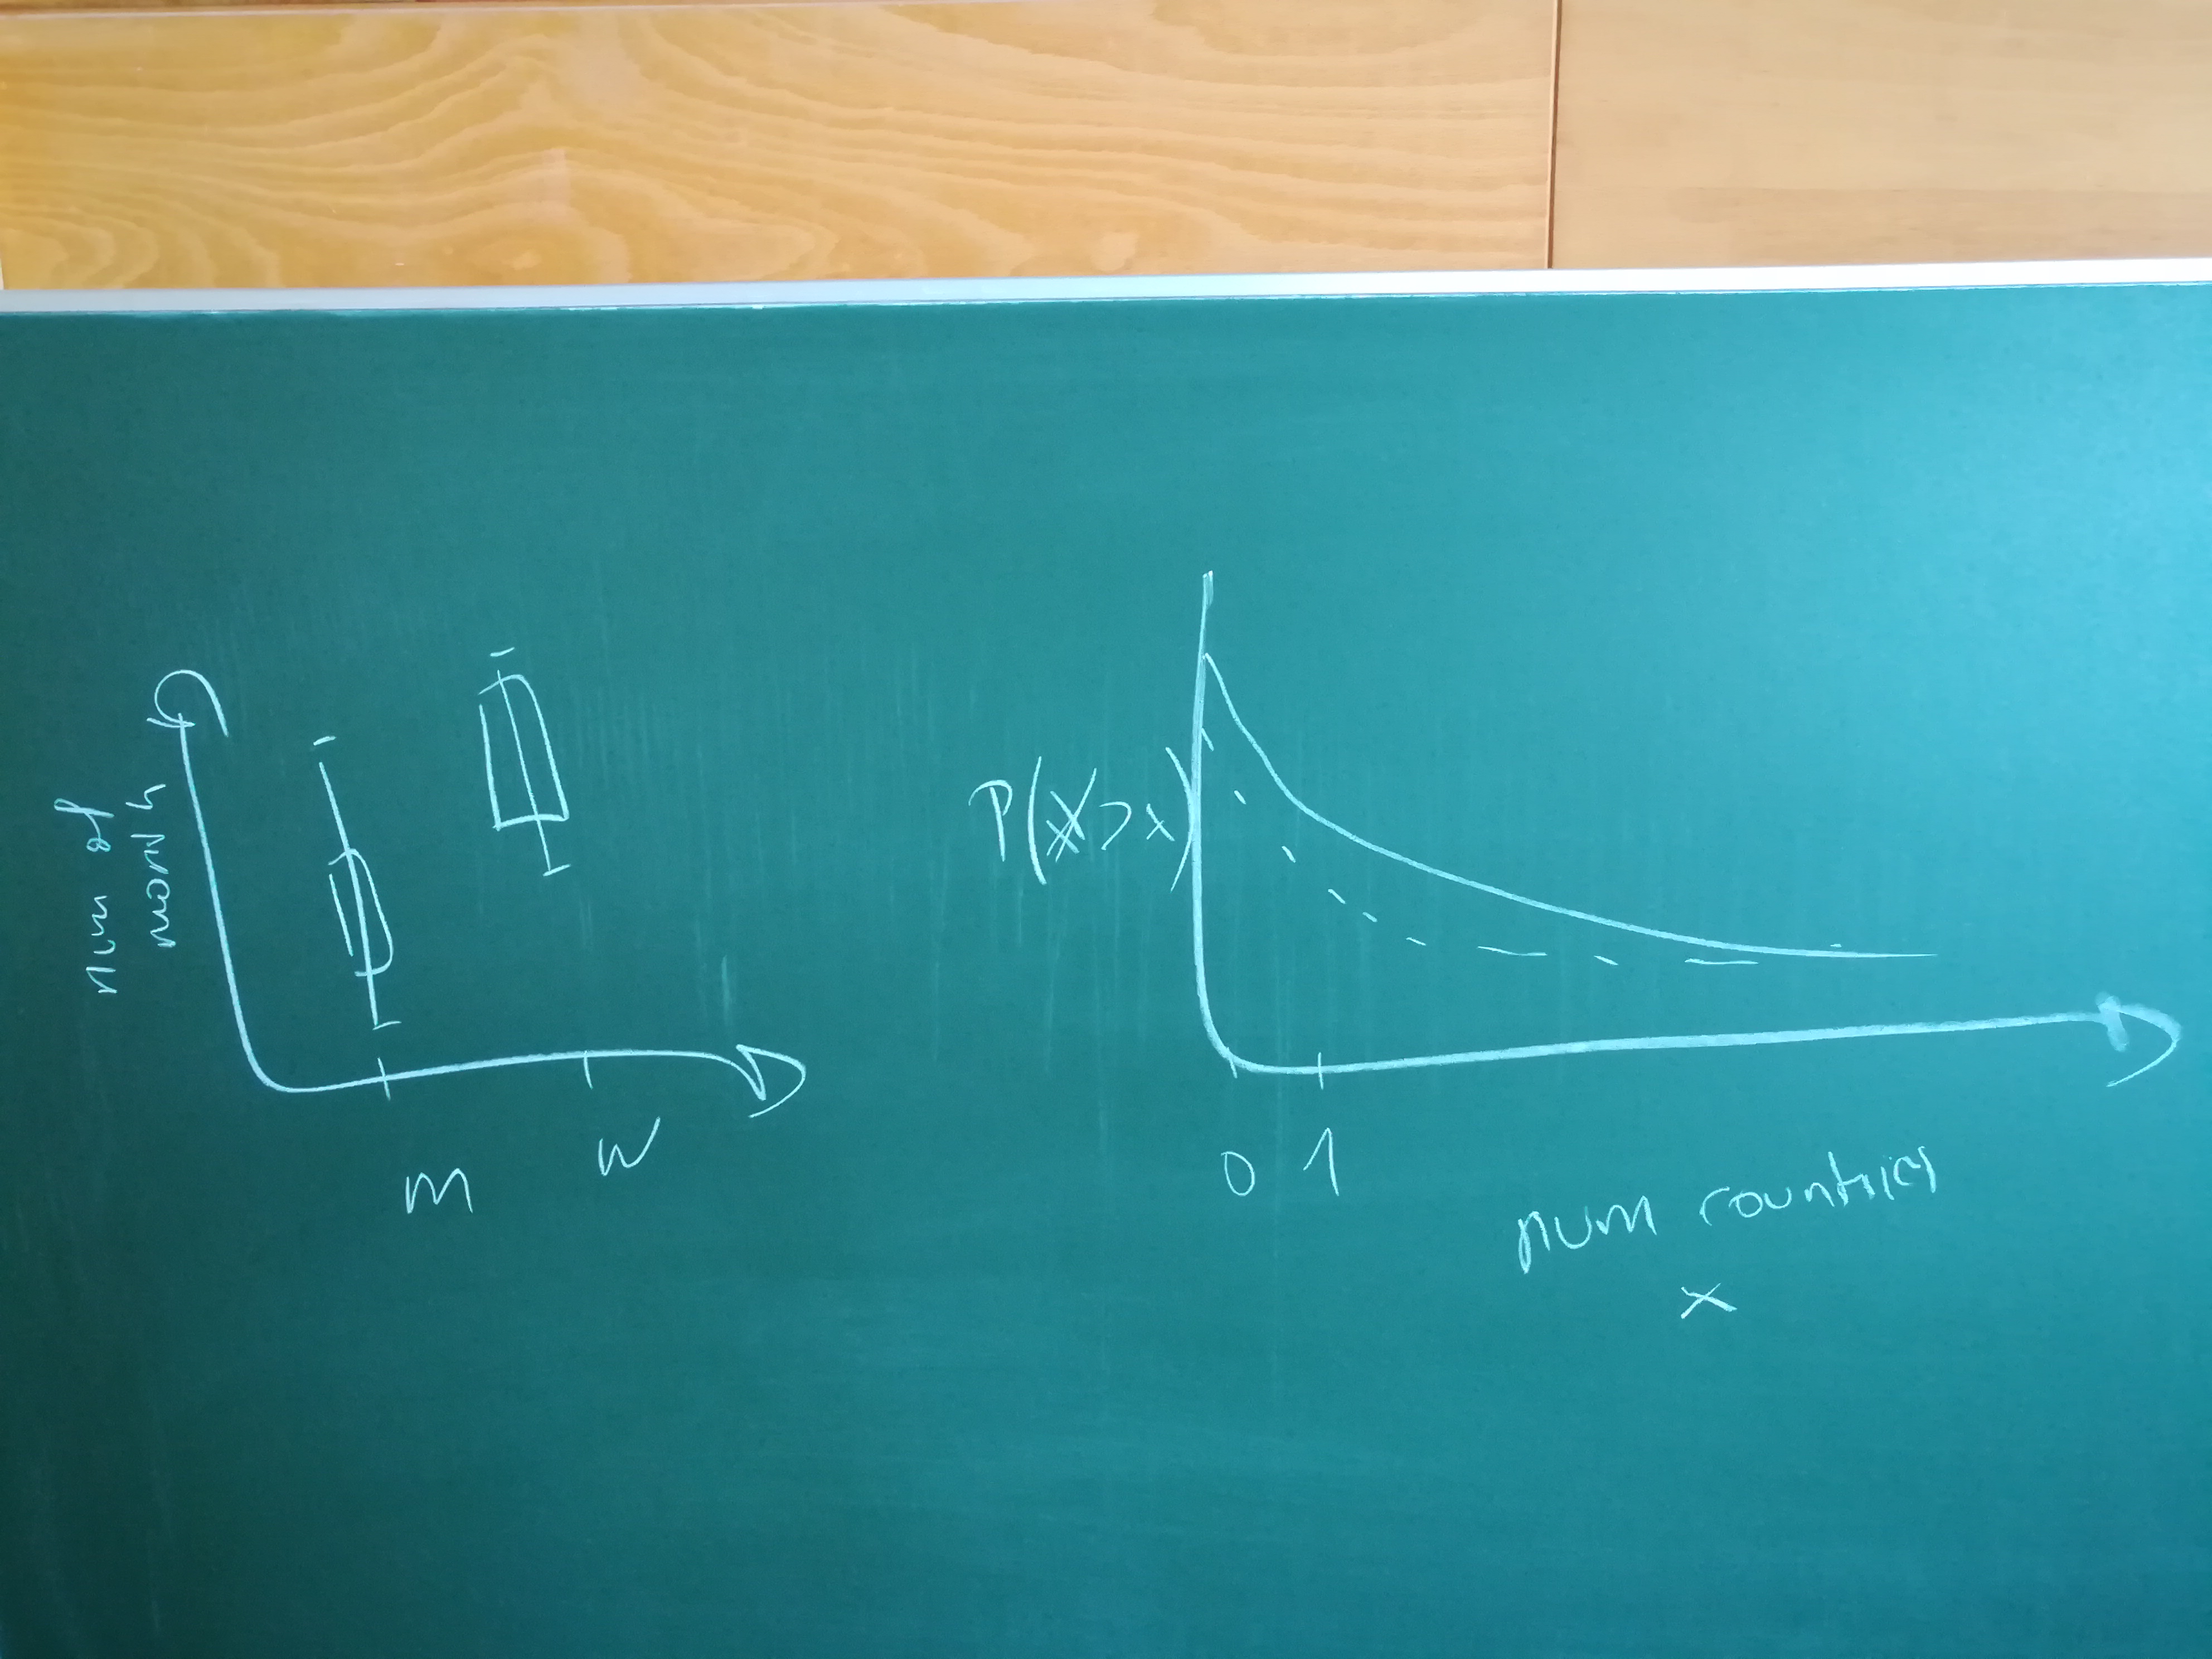 num of
month
m
w
P(X>x)
0 1
num countries
x